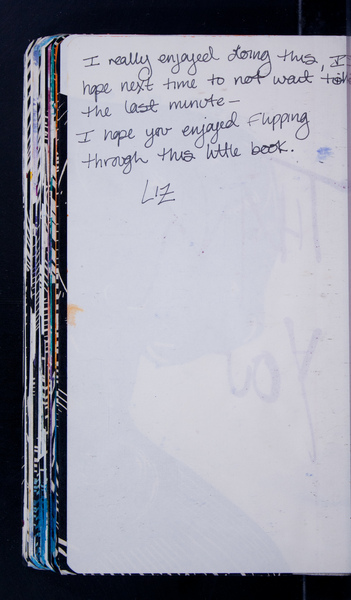 I really enjoyed doing this, I
hope next time to not wait
the last minute—
I hope you enjoyed flipping
through this little book.
LIZ
YOU